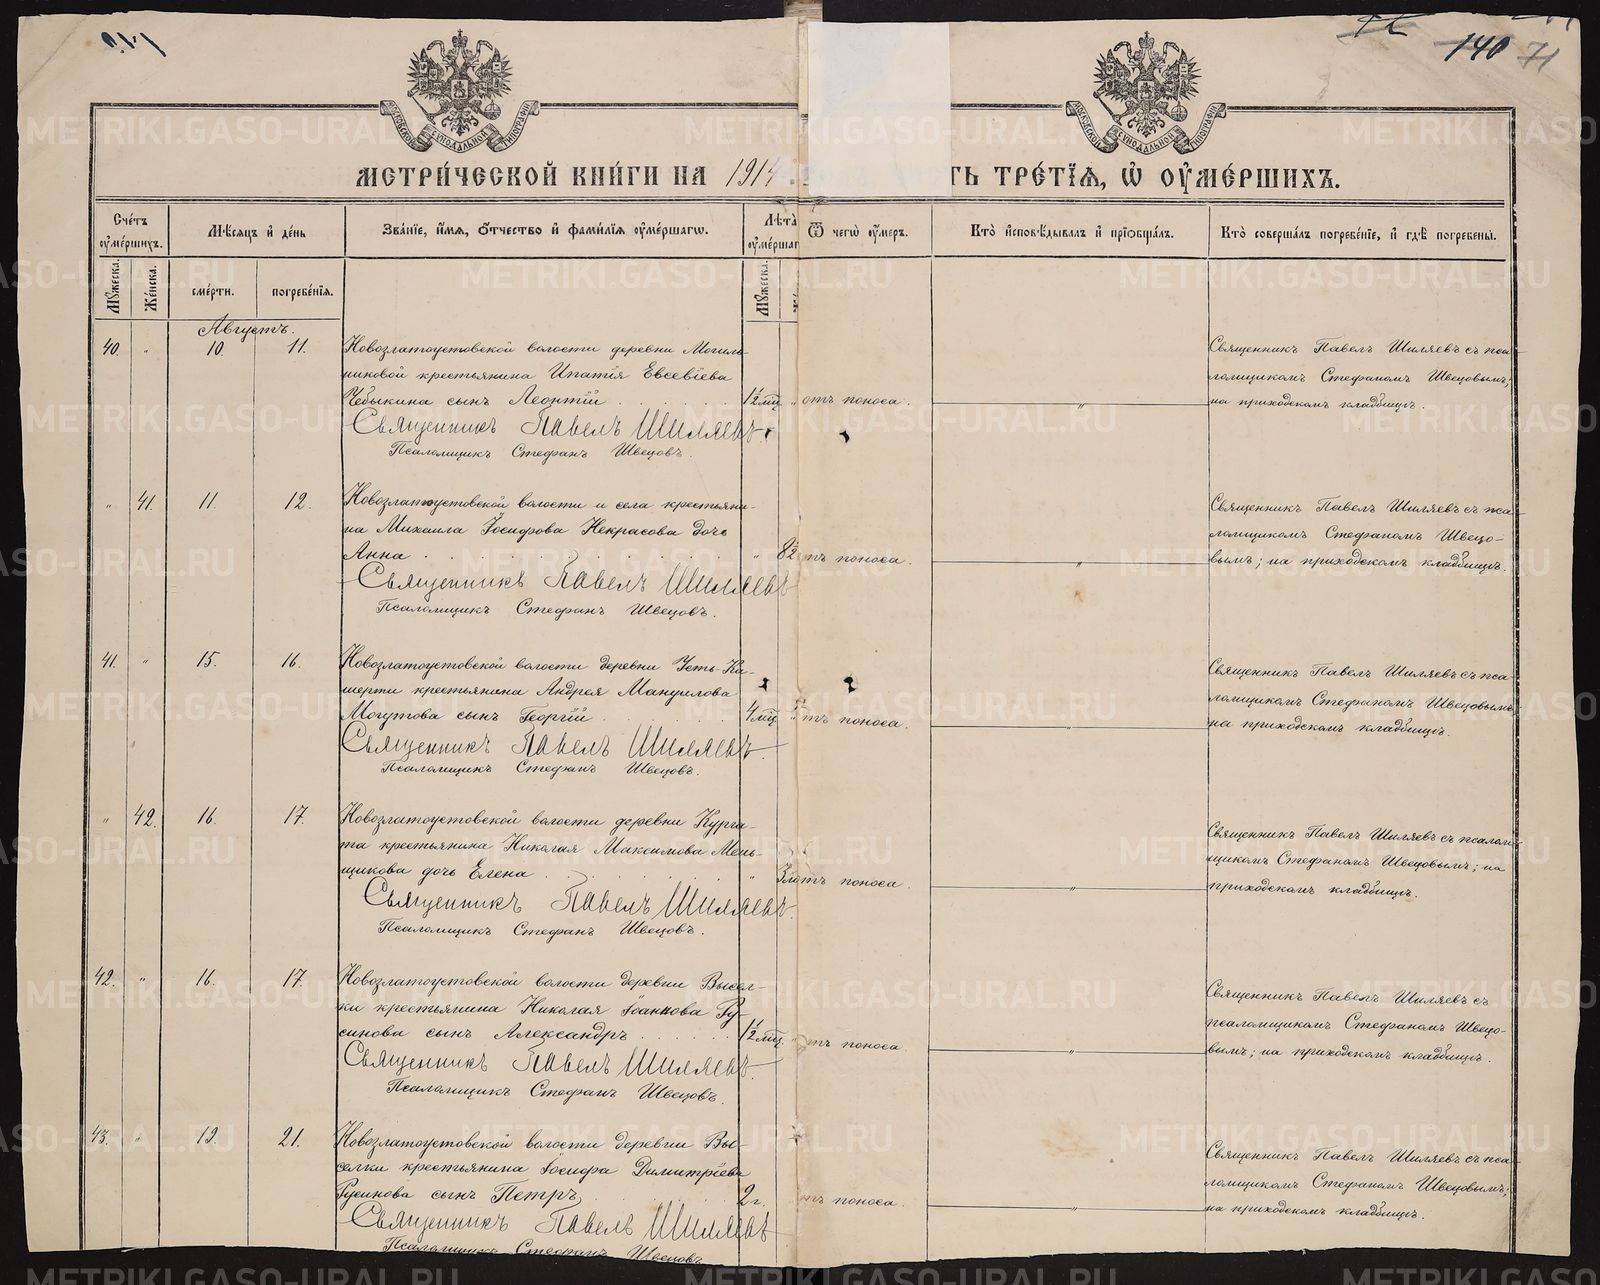 140 71
МОСКОВСКОЙ СѴНОДАЛЬНОЙ ТИПОГРАФІИ
МОСКОВСКОЙ СѴНОДАЛЬНОЙ ТИПОГРАФІИ
МЕТРИ́ЧЕСКОЙ КНИ́ГИ НА 1914 ТЬ ТРЕ́ТІѦ, Ѽ ОУ҆МЕ́РШИХЪ.
Сче́тъ оу҆ме́ршихъ.
Мѣ́сѧцъ и҆ де́нь
Зва́нїе, и҆́мѧ, ѻ҆́тчество и҆ фами́лїѧ оу҆ме́ршагѡ.
Лѣ́та оу҆ме́ршаг
Ѿ чегѡ̀ оу҆́меръ.
Кто̀ и҆сповѣ́дывалъ и҆ прїѡбща́лъ.
Кто̀ соверша́лъ погребе́нїе, и҆ гдѣ̀ погребены̀.
Мꙋ́жеска.
Же́нска.
сме́рти.
погребе́нїѧ.
Мꙋ́жеска.
Августъ.
40. " 10. 11. Новозлатоустовской волости деревни Могиль-
никовой крестьянина Ипатія Евсевіева
Чебыкина сынъ Леонтій 1½ мц. " отъ поноса. "
Священникъ Павелъ Шиляевъ.
Псаломщикъ Стефанъ Швецовъ.
Священникъ Павелъ Шиляевъ съ пса-
ломщикомъ Стефаномъ Швецовымъ;
на приходскомъ кладбищѣ.
" 41. 11. 12. Новозлатоустовской волости и села крестьяни-
на Михаила Іосифова Некрасова дочь
Анна " 8½ отъ поноса. "
Священникъ Павелъ Шиляевъ
Псаломщикъ Стефанъ Швецовъ.
Священникъ Павелъ Шиляевъ съ пса-
ломщикомъ Стефаномъ Швецо-
вымъ; на приходскомъ кладбищѣ.
41. " 15. 16. Новозлатоустовской волости деревни Усть-Ки-
шерти крестьянина Андрея Мануилова
Могутова сынъ Георгій 4 мц. " отъ поноса.
Священникъ Павелъ Шиляевъ
Псаломщикъ Стефанъ Швецовъ.
Священникъ Павелъ Шиляевъ съ пса-
ломщикомъ Стефаномъ Швецовымъ;
на приходскомъ кладбищѣ.
" 42. 16. 17. Новозлатоустовской волости деревни Курга-
та крестьянина Николая Максимова Мень-
щикова дочь Елена " отъ поноса. "
Священникъ Павелъ Шиляевъ.
Псаломщикъ Стефанъ Швецовъ.
Священникъ Павелъ Шиляевъ съ псалом-
щикомъ Стефаномъ Швецовымъ; на
приходскомъ кладбищѣ.
42. " 16. 17. Новозлатоустовской волости деревни Высел-
ки крестьянина Николая Іоаннова Ру-
синова сынъ Александръ 1½ мц. " отъ поноса. "
Священникъ Павелъ Шиляевъ.
Псаломщикъ Стефанъ Швецовъ.
Священникъ Павелъ Шиляевъ съ
псаломщикомъ Стефаномъ Швецо-
вымъ; на приходскомъ кладбищѣ.
43. " 19. 21. Новозлатоустовской волости деревни Вы-
селки крестьянина Іосифа Димитріева
Русинова сынъ Петръ 2 г. отъ поноса. "
Священникъ Павелъ Шиляевъ
Псаломщикъ Стефанъ Швецовъ.
Священникъ Павелъ Шиляевъ съ пса-
ломщикомъ Стефаномъ Швецовымъ;
на приходскомъ кладбищѣ.
METRIKI.GASO-URAL.RU